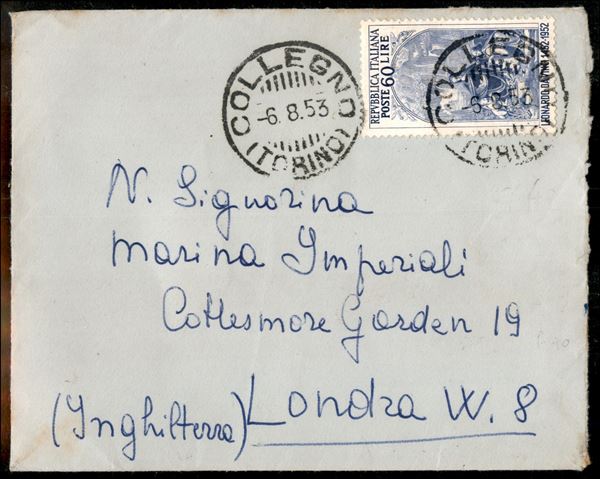 COLLEGNO
-6.8.53
(TORINO)
REPVBBLICA ITALIANA
POSTE 60 LIRE
LEONARDO DA VINCI 1452-1952
COLLEGNO
-6.8.53
(TORINO)
N. Signorina
Marina Imperiali
Cottesmore Gorden 19
(Inghilterra) Londra W. 8